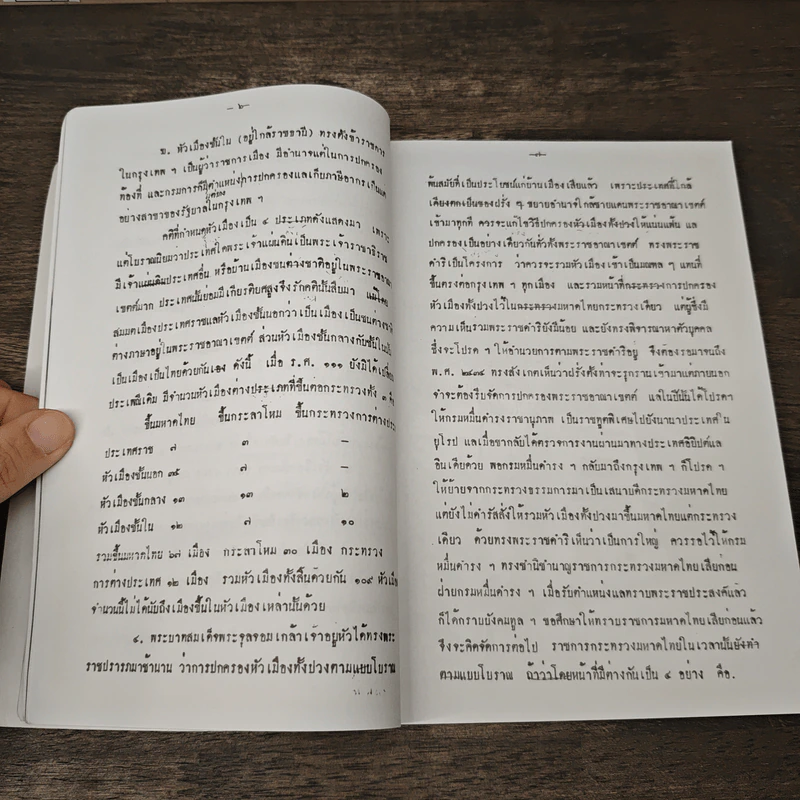 – ๖ –
ฆ. หัวเมืองชั้นใน (อยู่ใกล้ราชธานี) ทรงตั้งข้าราชการ
ในกรุงเทพ ฯ เป็นผู้ว่าราชการเมือง มีอำนาจแต่ในการปกครอง
ท้องที่ และกรมการก็มีตำแหน่งการปกครองแลเก็บภาษีอากร
อย่างสาขาของรัฐบาลในกรุงเทพ ฯ
คติที่กำหนดหัวเมืองเป็น ๔ ประเภทดังแสดงมา เพราะ
แต่โบราณนิยมว่าประเทศใดพระเจ้าแผ่นดินเป็นพระเจ้าราชาธิราช
มีเจ้าแผ่นดินประเทศอื่น หรือบ้านเมืองชนต่างชาติอยู่ในพระราชอาณา
เขตต์มาก ประเทศนั้นย่อมมีเกียรติยศสูงจึงรักคตินั้นสืบมา
สมมตเมืองประเทศราชแลหัวเมืองชั้นนอกว่าเป็นเมืองเป็นชนต่างชาติ
ต่างภาษาอยู่ในพระราชอาณาเขตต์ ส่วนหัวเมืองชั้นกลางกับชั้นใน
เป็นเมืองเป็นไทยด้วยกันเอง ดังนี้ เมื่อ ร.ศ. ๑๑๑ ยังมิได้
ประเพณีเดิม มีจำนวนหัวเมืองต่างประเภทที่ขึ้นต่อกระทรวงทั้ง ๓
ขึ้นมหาดไทย ขึ้นกระลาโหม ขึ้นกระทรวงการต่างประ
ประเทศราช ๗ ๓ –
หัวเมืองชั้นนอก ๓๕ ๗ –
หัวเมืองชั้นกลาง ๑๓ ๑๓ ๒
หัวเมืองชั้นใน ๑๒ ๗ ๑๐
รวมขึ้นมหาดไทย ๖๗ เมือง กระลาโหม ๓๐ เมือง กระทรวง
การต่างประเทศ ๑๒ เมือง รวมหัวเมืองทั้งสิ้นด้วยกัน ๑๐๙ หัวเมือง
จำนวนนี้ไม่ได้นับถึงเมืองขึ้นในหัวเมืองเหล่านั้นด้วย
๔. พระบาทสมเด็จพระจุลจอมเกล้าเจ้าอยู่หัวได้ทรงพระ
ราชปรารภมาช้านาน ว่าการปกครองหัวเมืองทั้งปวงตามแบบโบราณ
พ้นสมัยที่เป็นประโยชน์แก่บ้านเมืองเสียแล้ว เพราะประเทศที่ใกล้
เคียงตกเป็นของฝรั่ง ๆ ขยายอำนาจใกล้ชายแดนพระราชอาณาเขตต์
เข้ามาทุกที ควรจะแก้ไขวิธีปกครองหัวเมืองทั้งปวงให้แน่นแฟ้น แล
ปกครองเป็นอย่างเดียวกันทั่วทั้งพระราชอาณาเขตต์ ทรงพระราช
ดำริเป็นโครงการ ว่าควรจะรวมหัวเมืองเข้าเป็นมณฑล ๆ แทนที่
ขึ้นตรงต่อกรุงเทพ ฯ ทุกเมือง และรวมหน้าที่กระทรวงการปกครอง
หัวเมืองทั้งปวงไว้ในกระทรวงมหาดไทยกระทรวงเดียว แต่ผู้ซึ่งมี
ความเห็นร่วมพระราชดำริยังมีน้อย และยังทรงพิจารณาหาตัวบุคคล
ซึ่งจะโปรด ฯ ให้อำนวยการตามพระราชดำริอยู่ จึงต้องรอมาจนถึง
พ.ศ. ๒๔๓๔ ทรงสังเกตเห็นว่าฝรั่งตั้งท่าจะรุกรานเข้ามาแต่ภายนอก
จำจะต้องรีบจัดการปกครองพระราชอาณาเขตต์ แลในปีนั้นได้โปรดา
ให้กรมหมื่นดำรงราชานุภาพ เป็นราชทูตพิเศษไปยังนานาประเทศใน
ยุโรป แลเมื่อขากลับได้ตรวจการงานผ่านมาทางประเทศอียิปต์แล
อินเดียด้วย พอกรมหมื่นดำรง ฯ กลับมาถึงกรุงเทพ ฯ ก็โปรด ฯ
ให้ย้ายจากกระทรวงธรรมการมาเป็นเสนาบดีกระทรวงมหาดไทย
แต่ยังไม่ดำรัสสั่งให้รวมหัวเมืองทั้งปวงมาขึ้นมหาดไทยแต่กระทรวง
เดียว ด้วยทรงพระราชดำริเห็นว่าเป็นการใหญ่ ควรรอไว้ให้กรม
หมื่นดำรง ฯ ทรงชำนิชำนาญราชการกระทรวงมหาดไทยเสียก่อน
ฝ่ายกรมหมื่นดำรง ฯ เมื่อรับตำแหน่งแลทราบพระราชประสงค์แล้ว
ก็ได้กราบบังคมทูล ฯ ขอศึกษาให้ทราบการมหาดไทยเสียก่อนแล้ว
จึงจะคิดจัดการต่อไป ราชการกระทรวงมหาดไทยในเวลานั้นยังทำ
ตามแบบโบราณ ถ้าว่าโดยหน้าที่มีต่างกันเป็น ๔ อย่าง คือ.